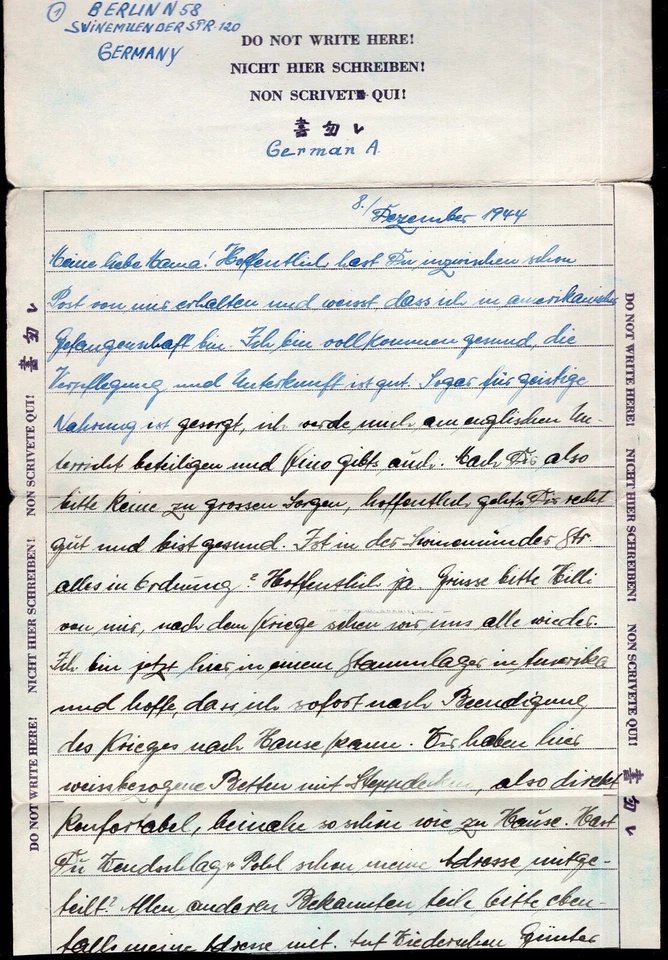 ① BERLIN N 58
SWINEMUENDERSTR. 120
GERMANY
DO NOT WRITE HERE!
NICHT HIER SCHREIBEN!
NON SCRIVETE QUI!
書勿レ
German A.
8./Dezember 1944
Meine liebe Mama! Hoffentlich hast Du inzwischen schon
Post von mir erhalten und weisst, dass ich in amerikanischer
Gefangenschaft bin. Ich bin vollkommen gesund, die
Verpflegung und Unterkunft ist gut. Sogar für geistige
Nahrung ist gesorgt, ich werde mich am englischen Un-
terricht beteiligen und Kino gibts auch. Mach Dir also
bitte keine zu grossen Sorgen, hoffentlich gehts Dir recht
gut und bist gesund. Ist in der Swinemünder Str.
alles in Ordnung? Hoffentlich ja. Grüsse bitte Willi
von mir, nach dem Kriege sehen wir uns alle wieder.
Ich bin jetzt hier in einem Stammlager in Amerika
und hoffe, dass ich sofort nach Beendigung
des Krieges nach Hause kann. Wir haben hier
weissbezogene Betten mit Steppdecken, also direkt
konfortabel, beinahe so schön wie zu Hause. Hast
Du + Pohl schon meine Adresse mitge-
teilt? Allen anderen Bekannten teile bitte eben-
falls meine Adresse mit. Auf Wiedersehen Günter
DO NOT WRITE HERE! NICHT HIER SCHREIBEN! NON SCRIVETE QUI! 書勿レ
DO NOT WRITE HERE! NICHT HIER SCHREIBEN! NON SCRIVETE QUI! 書勿レ